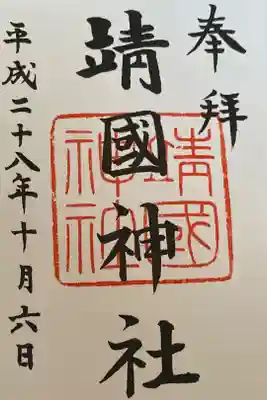 奉拝
靖國神社
靖國
神社
平成二十八年十月六日